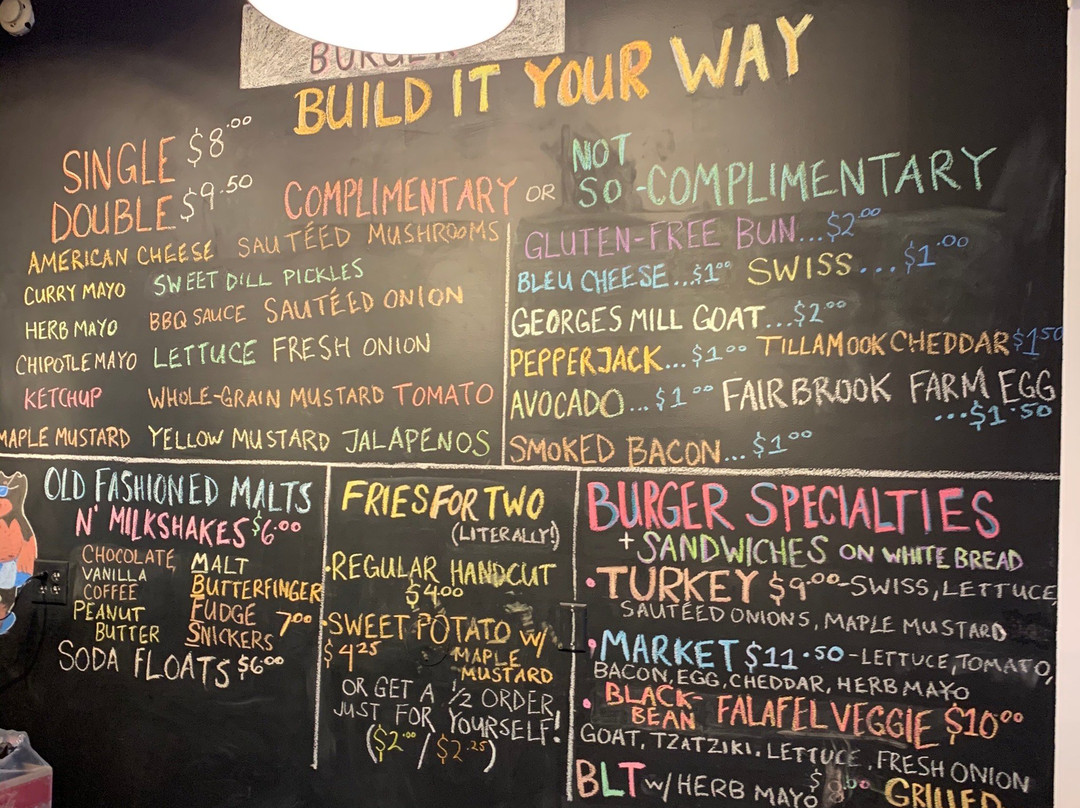 BURGER
BUILD IT YOUR WAY
SINGLE $8.00
DOUBLE $9.50
COMPLIMENTARY OR NOT SO-COMPLIMENTARY
AMERICAN CHEESE SAUTÉED MUSHROOMS
CURRY MAYO SWEET DILL PICKLES
HERB MAYO BBQ SAUCE SAUTÉED ONION
CHIPOTLE MAYO LETTUCE FRESH ONION
KETCHUP WHOLE-GRAIN MUSTARD TOMATO
MAPLE MUSTARD YELLOW MUSTARD JALAPENOS
GLUTEN-FREE BUN...$2.00
BLEU CHEESE...$1.00 SWISS...$1.00
GEORGES MILL GOAT...$2.00
PEPPERJACK...$1.00 TILLAMOOK CHEDDAR $1.50
AVOCADO...$1.00 FAIRBROOK FARM EGG
...$1.50
SMOKED BACON...$1.00
OLD FASHIONED MALTS
N' MILKSHAKES $6.00
CHOCOLATE, MALT
VANILLA BUTTERFINGER
COFFEE FUDGE
PEANUT BUTTER SNICKERS 7.00
SODA FLOATS $6.00
FRIES FOR TWO
(LITERALLY!)
•REGULAR HANDCUT
$4.00
•SWEET POTATO W/
$4.25 MAPLE
MUSTARD
OR GET A 1/2 ORDER,
JUST FOR YOURSELF!
($2.00/$2.25)
BURGER SPECIALTIES
+ SANDWICHES ON WHITE BREAD
•TURKEY $9.00-SWISS, LETTUCE,
SAUTÉED ONIONS, MAPLE MUSTARD
•MARKET $11.50-LETTUCE, TOMATO,
BACON, EGG, CHEDDAR, HERB MAYO
•BLACK-BEAN FALAFEL VEGGIE $10.00
GOAT, TZATZIKI, LETTUCE, FRESH ONION
BLT W/HERB MAYO $8.00 GRILLED